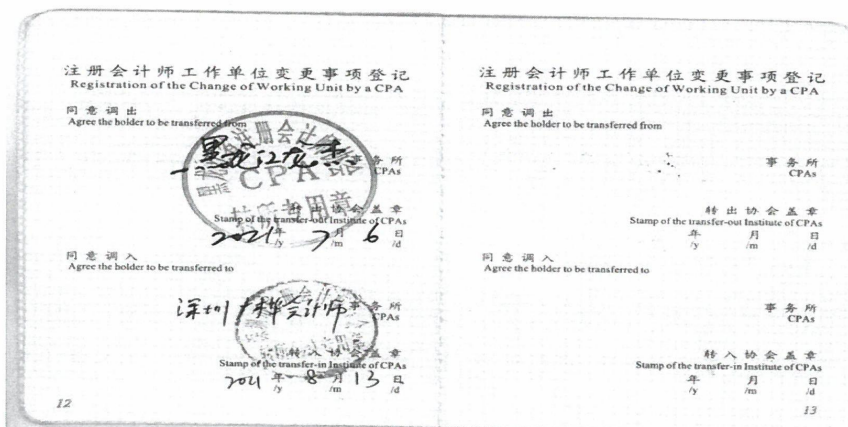 注册会计师工作单位变更事项登记
Registration of the Change of Working Unit by a CPA
同意调出
Agree the holder to be transferred from
黑龙江
事务所
CPAs
CPA
转所专用章
转出协会盖章
Stamp of the transfer-out Institute of CPAs
2021年 7月 6日
/y /m /d
同意调入
Agree the holder to be transferred to
深圳 会计师 事务所
CPAs
转入协会盖章
Stamp of the transfer-in Institute of CPAs
2021年 8月 13日
/y /m /d
12
注册会计师工作单位变更事项登记
Registration of the Change of Working Unit by a CPA
同意调出
Agree the holder to be transferred from
事务所
CPAs
转出协会盖章
Stamp of the transfer-out Institute of CPAs
年 月 日
/y /m /d
同意调入
Agree the holder to be transferred to
事务所
CPAs
转入协会盖章
Stamp of the transfer-in Institute of CPAs
年 月 日
/y /m /d
13